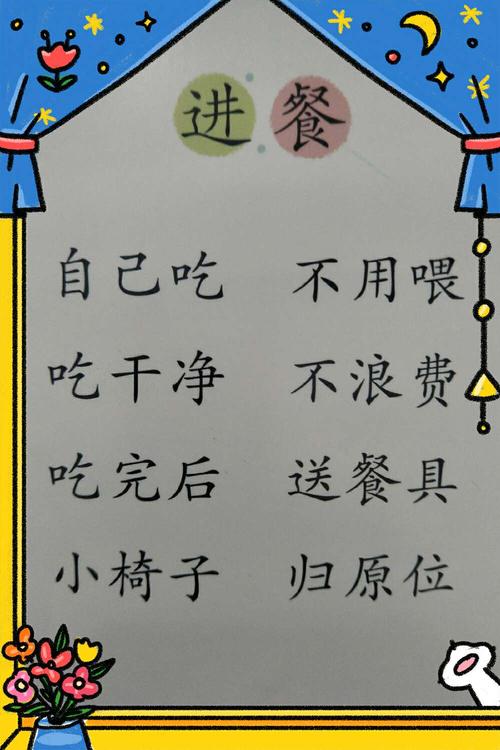 进餐
自己吃 不用喂
吃干净 不浪费
吃完后 送餐具
小椅子 归原位